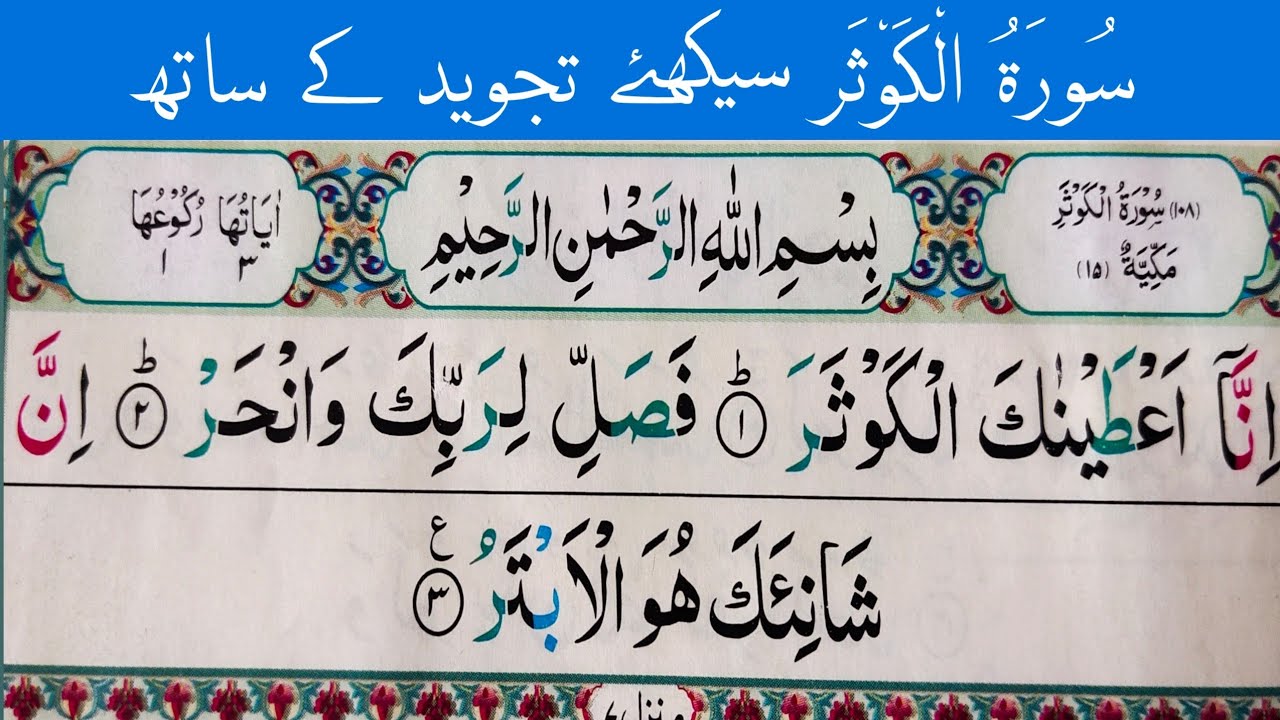 سُورَةُ الْكَوْثَر سیکھئے تجوید کے ساتھ
(١٠٨) سُوْرَةُ الْكَوْثَرِ
مَكِّيَّةٌ (١٥)
بِسْمِ اللّٰهِ الرَّحْمٰنِ الرَّحِيْمِ
اٰيَاتُهَا رُكُوْعُهَا
٣ ١
اِنَّاۤ اَعْطَيْنٰكَ الْكَوْثَرَ ؕ ١ فَصَلِّ لِرَبِّكَ وَانْحَرْ ؕ ٢ اِنَّ
شَانِئَكَ هُوَ الْاَبْتَرُ ٣ ع
منزل ٧